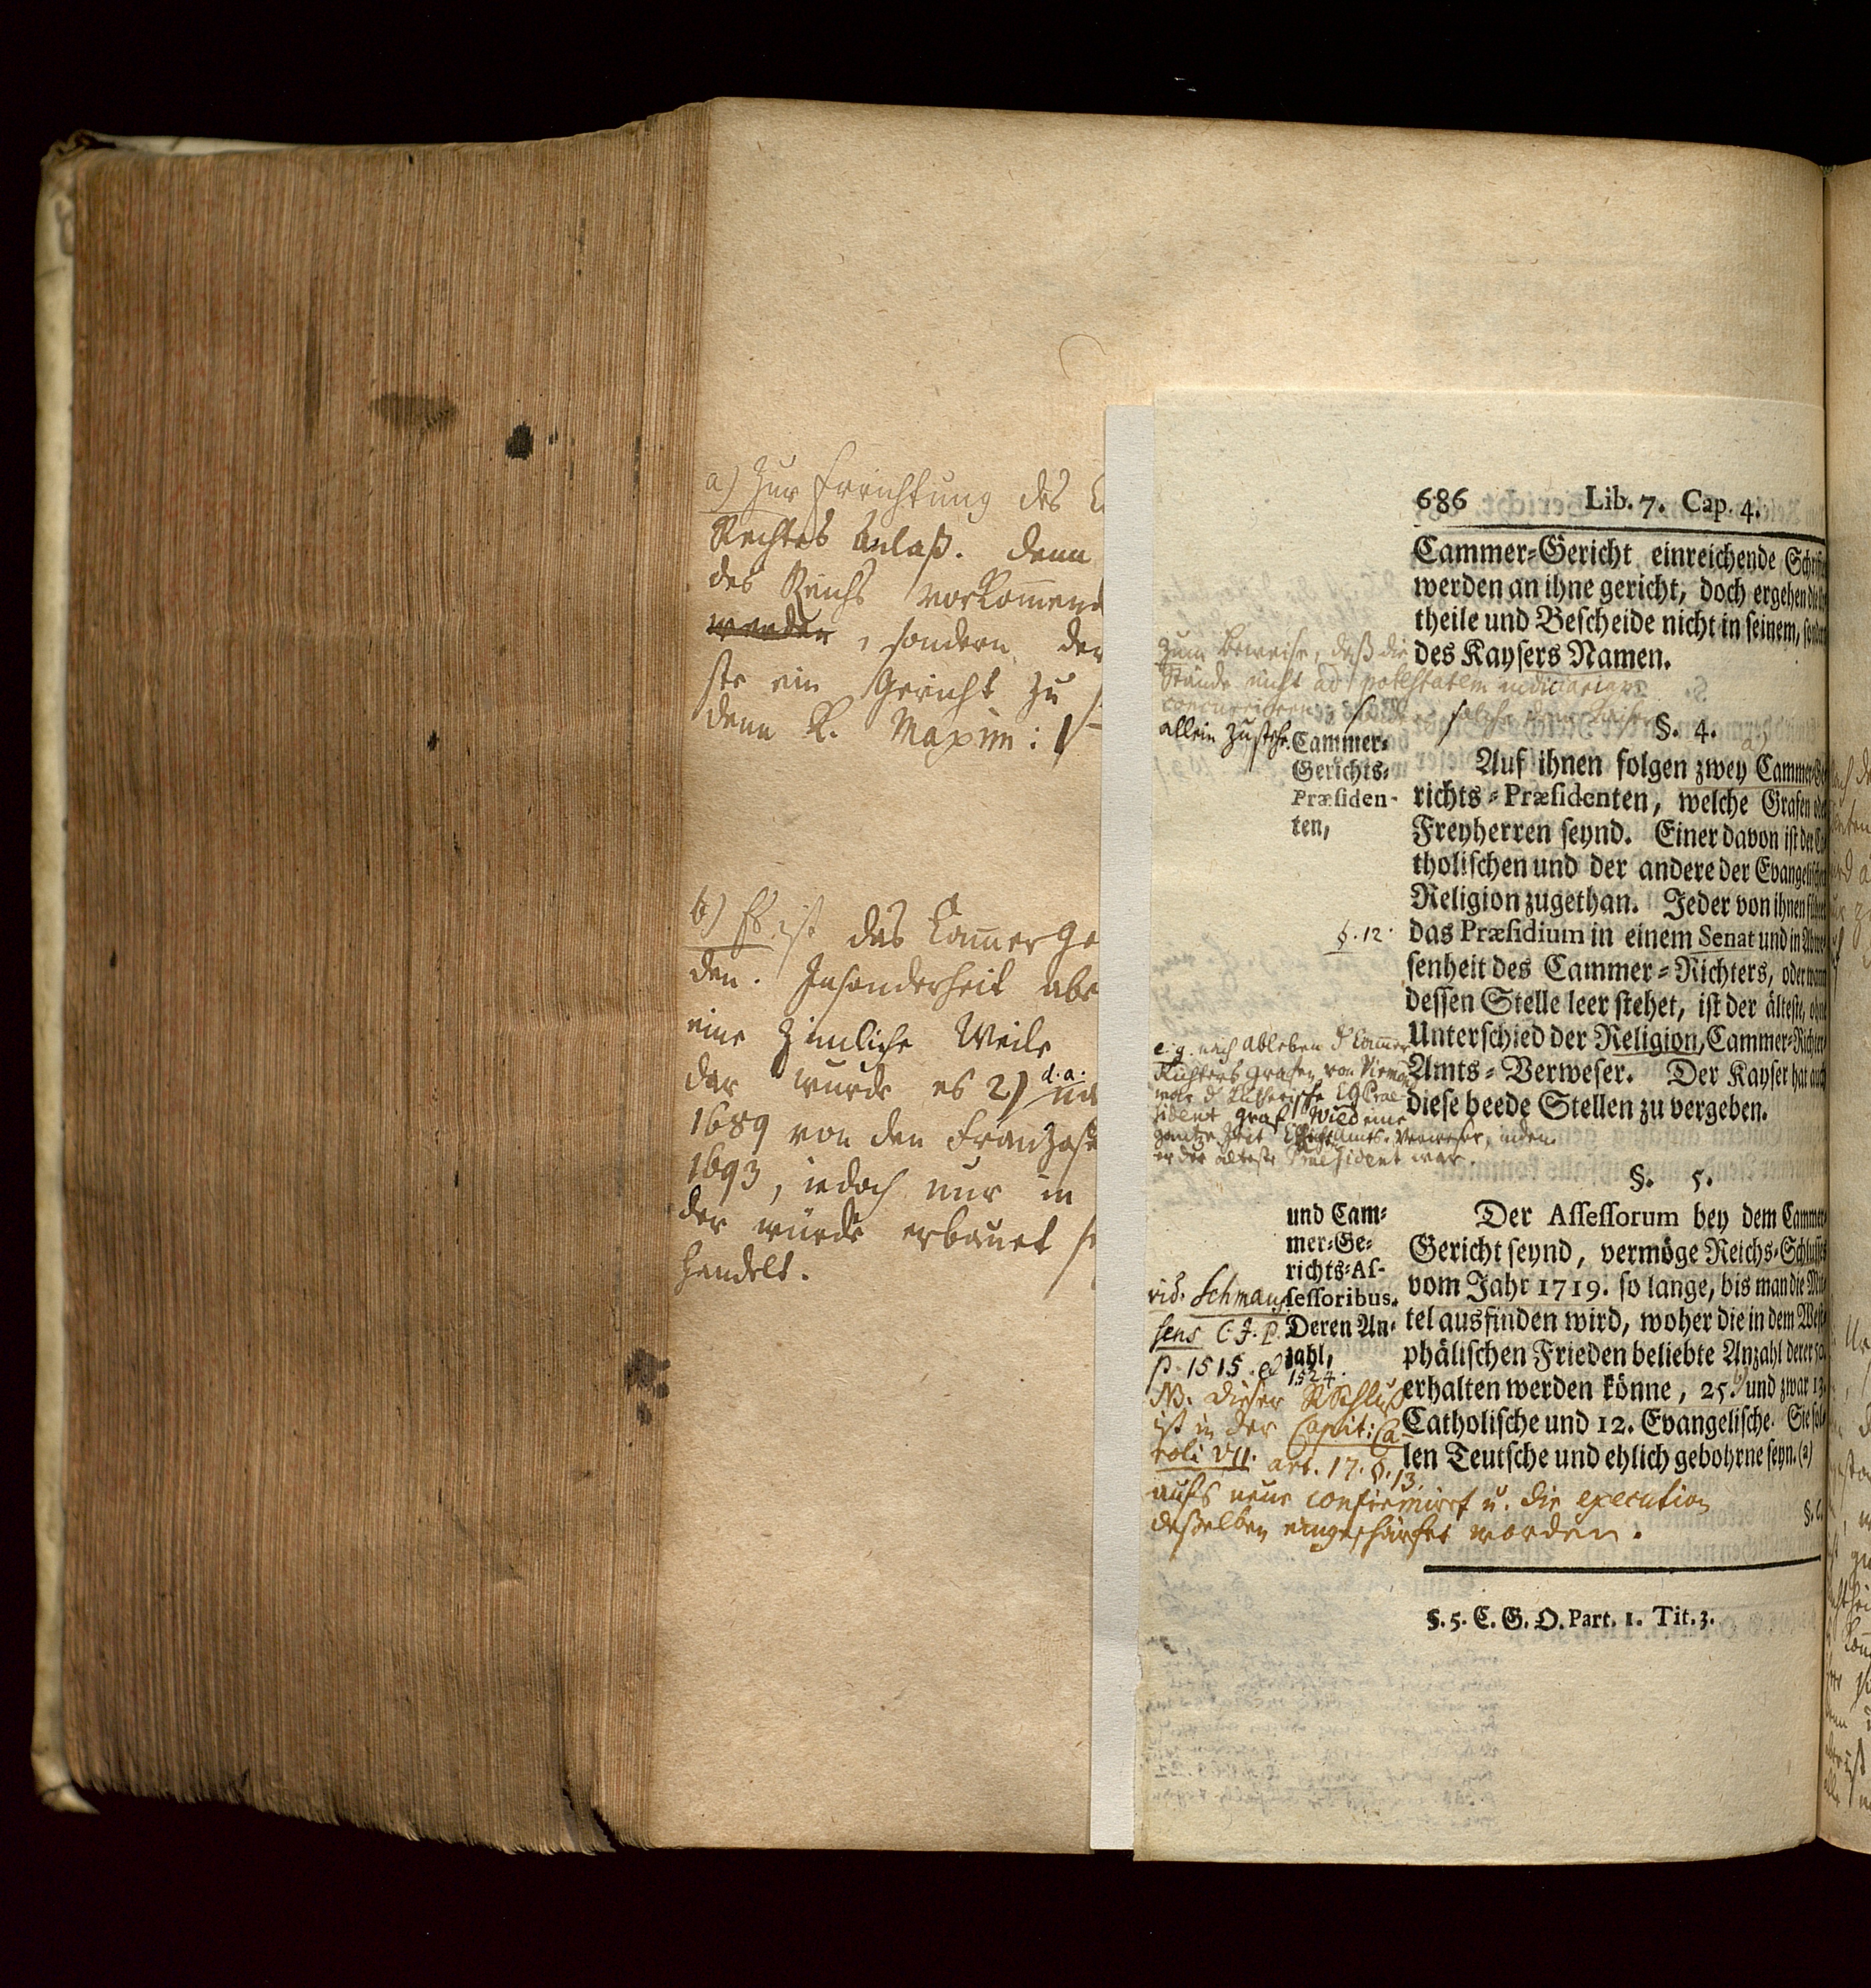 a) Zur Errichtung des
Rechtes Anlaß. denn
des Reichs vorkommend
werden, sondern der
ste ein Gericht zu
denn K. Maxim: I
b) Es ist das Kammerge
den. Insonderheit abe
eine zimliche Weile
dar wurde es 2) d. a.
1689 von den Franzose
1693, iedoch nur in
der würde erbauet
handelt.
686 Lib. 7. Cap. 4.
Cammer-Gericht einreichende Schrif
werden an ihne gericht, doch ergehen die
theile und Bescheide nicht in seinem, sondern
des Kaysers Namen.
Zum Beweise, daß die
Stände nicht ad potestatem iudiciariam
concurriren, sondern solche dem Kaiser
allein zustehe.
§. 4.
Cammer-
Gerichts-
Præsiden-
ten,
Auf ihnen folgen zwey Cammer-Ge
richts-Præsidenten, welche Grafen oder
Freyherren seynd. Einer davon ist der Ca
tholischen und der andere der Evangelischen
Religion zugethan. Jeder von ihnen führet
§. 12.
das Præsidium in einem Senat und in Abwe
senheit des Cammer-Richters, oder wann
dessen Stelle leer stehet, ist der älteste, ohne
Unterschied der Religion, Cammer-Richter
Amts-Verweser. Der Kayser hat auch
diese beede Stellen zu vergeben.
e. g. nach Ableben d Kammer
Richters Grafen von Virmond
war d Lutherische CGPræ-
sident Graf Wied eine
gantze Zeit Amts-Verweser, indem
er der älteste Præsident war.
§. 5.
und Cam-
mer-Ge-
richts-As-
sessoribus.
Deren An-
zahl,
Der Assessorum bey dem Cammer-
Gericht seynd, vermöge Reichs-Schlusses
vom Jahr 1719. so lange, bis man die Mit
tel ausfinden wird, woher die in dem West
phälischen Frieden beliebte Anzahl derer 50.
erhalten werden könne, 25. und zwar 13.
Catholische und 12. Evangelische. Sie sol
len Teutsche und ehlich gebohrne seyn. (a)
vid. Schmaus
sens C. J. P.
p. 1515. et 1524.
NB. dieser RSchluß
ist in der Capit: Ca-
roli VII. art. 17. §. 13.
aufs neue confirmirt u. die execution
desselben eingeschärfet worden.
§. 6.
§. 5. C. G. O. Part. 1. Tit. 3.